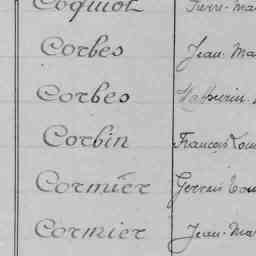 Coquiot Pierre-Ma
Corbes Jean-Ma
Corbes Mathurin
Corbin François Lou
Cormier Gervais Lou
Cormier Jean-Mar